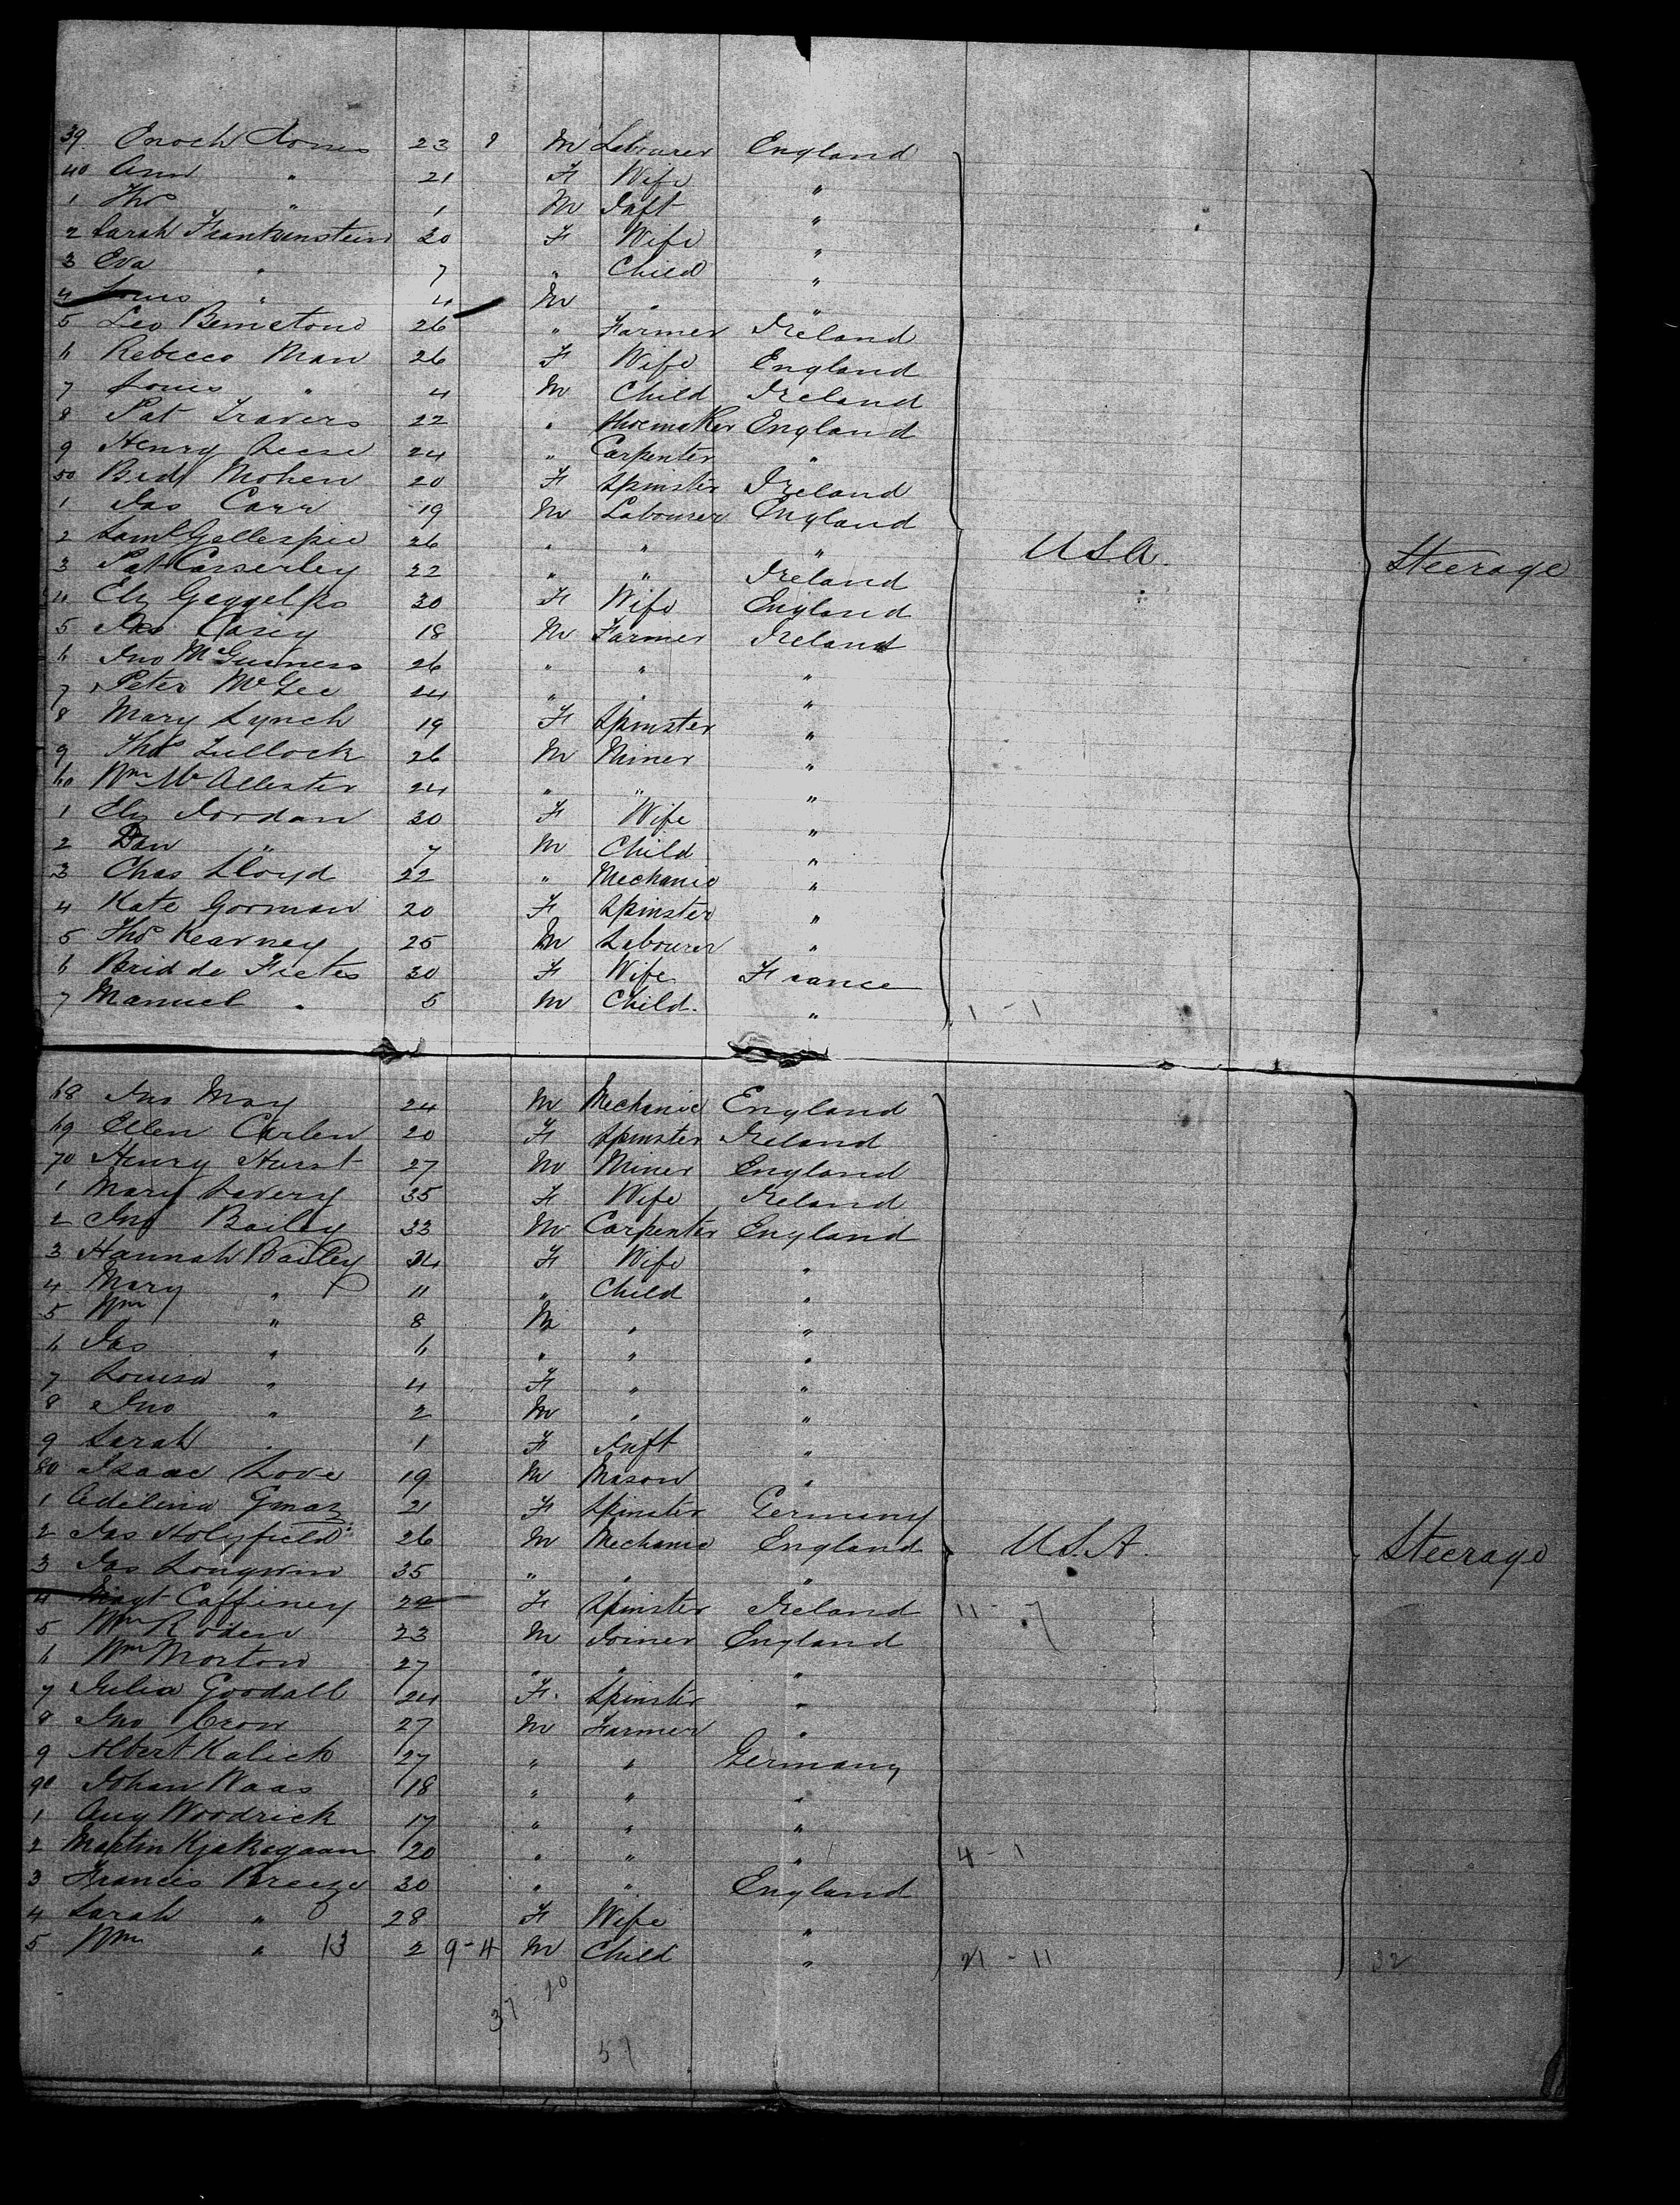 39 Enoch Jones 23 M Labourer England
40 Ann " 21 F Wife "
1 Thos " 1 M Inft "
2 Sarah Frankenstein 30 F Wife "
3 Eva " 7 " Child "
4 Louis " 4 M " "
5 Leo 26 " Farmer Ireland
6 Rebecca Man 26 F Wife England
7 Louis " 4 M Child Ireland
8 Pat Travers 22 " Shoemaker England
9 Henry Leese 24 " Carpenter "
50 Bridt Mohen 20 F Spinster Ireland
1 Jas Carr 19 M Labourer England
2 Saml Gellespie 26 " " "
3 Pat Casserley 22 " " Ireland
U.S.A. Steerage
4 Elz 30 F Wife England
5 Jas Casey 18 M Farmer Ireland
6 Jno McGuiness 26 " " "
7 Peter McGee 24 " " "
8 Mary Lynch 19 F Spinster "
9 Thos Tullock 26 M Miner "
60 Wm McAllester 24 " " "
1 Elz Jordan 30 F Wife "
2 Dan " 7 M Child "
3 Chas Lloyd 22 " Mechanic "
4 Kate Gorman 20 F Spinster "
5 Thos Kearney 25 M Labourer "
6 Brid de Fietes 30 F Wife France
7 Manuel " 5 M Child " 1 - 1
68 Jno May 24 M Mechanic England
69 Ellen Carlen 20 F Spinster Ireland
70 Henry Hurst 27 M Miner England
1 Mary Lavery 35 F Wife Ireland
2 Jno Bailey 33 M Carpenter England
3 Hannah Bailey 34 F Wife "
4 Mary " 11 " Child "
5 Wm " 8 M " "
6 Jas " 6 " " "
7 Louisa " 4 F " "
8 Jno " 2 M " "
9 Sarah " 1 F Inft "
80 Isaac Love 19 M Mason "
1 Adelina Gmaz 21 F Spinster Germany
2 Jas Holyfield 26 M Mechanic England U.S.A. Steerage
3 Jas Longwin 35 " " "
4 Margt Caffiney 22 F Spinster Ireland 11 - 7
5 Wm Roden 23 M Joiner England
6 Wm Morton 27 " " "
7 Julia Goodall 24 F Spinster "
8 Jno Crow 27 M Farmer "
9 Albert Kalich 27 " " Germany
90 Johan Waas 18 " " "
1 Aug Woodrick 17 " " "
2 Martin 20 " " " 4 - 1
3 Francis Breeze 30 " " England
4 Sarah " 28 F Wife "
5 Wm " 13 2 9-4 M Child " 21 - 11 32
37-20
57